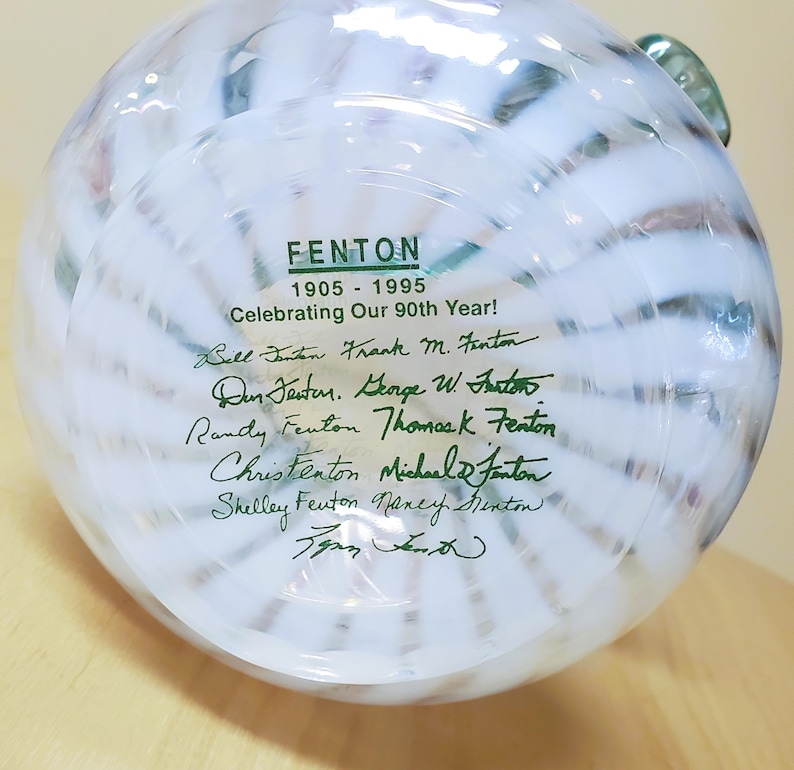 FENTON
1905 - 1995
Celebrating Our 90th Year!
Bill Fenton Frank M. Fenton
Don Fenton. George W. Fenton
Randy Fenton Thomas K Fenton
Chris Fenton Michael D Fenton
Shelley Fenton Nancy Fenton
Lynn Fenton